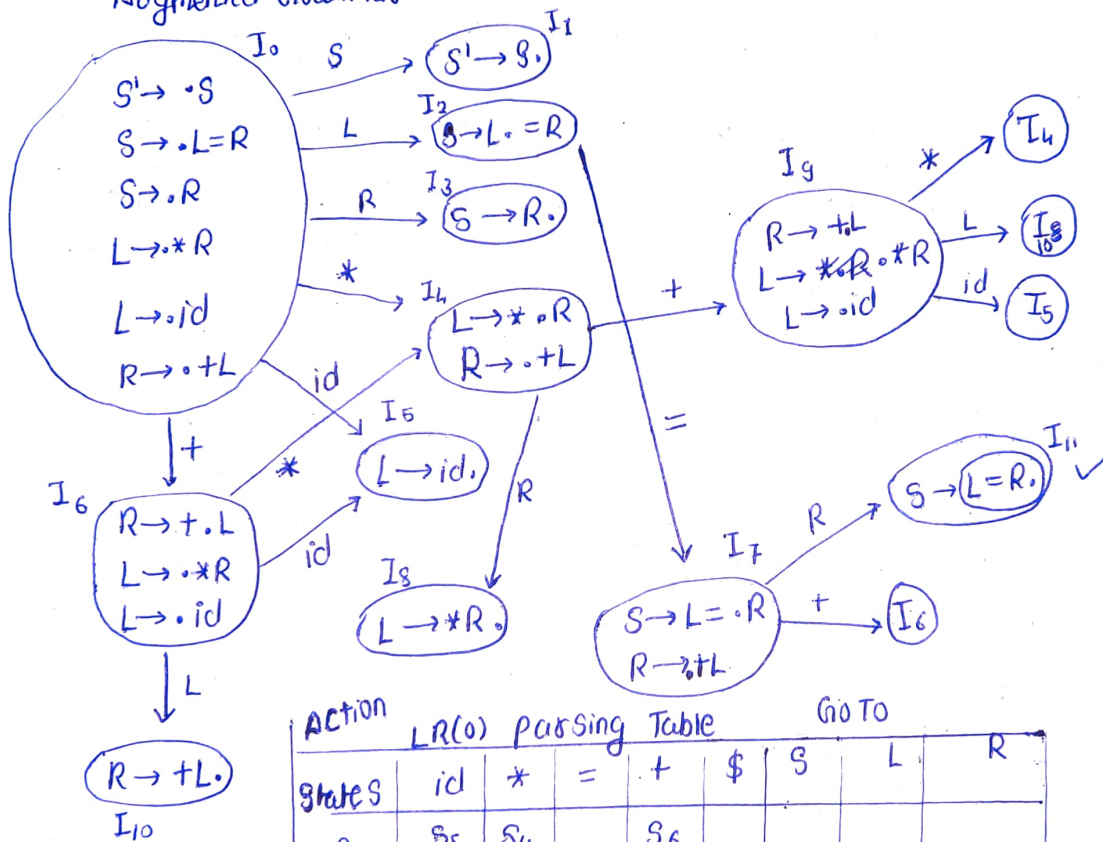 I₀
S' → .S
S → .L=R
S → .R
L → .*R
L → .id
R → .+L
S
I₁
S' → S.
L
I₂
S → L. = R
R
I₃
S → R.
*
I₄
L → *.R
R → .+L
id
I₅
L → id.
+
I₆
R → +.L
L → .*R
L → .id
*
id
L
R → +L.
I₁₀
R
I₈
L → *R.
+
I₉
R → +.L
L → .*R
L → .id
*
I₄
L
10
id
I₅
=
I₇
S → L = .R
R → .+L
R
I₁₁
S → L = R. ✓
+
I₆
Action LR(0) Parsing Table GO TO
States id * = + $ S L R
S₅ S₄ S₆